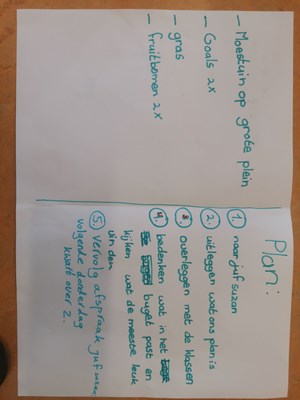 - Moestuin op grote plein
- Goals 2x
- gras
- fruitbomen 2x
Plan:
1. naar juf suzan
2. uitleggen wat ons plan is
3. overleggen met de klassen
4. bedenken wat in het
buget past en
kijken wat de meeste leuk
vinden
5. vervolg afspraak juf suzan
volgende donderdag
kwart over 2.